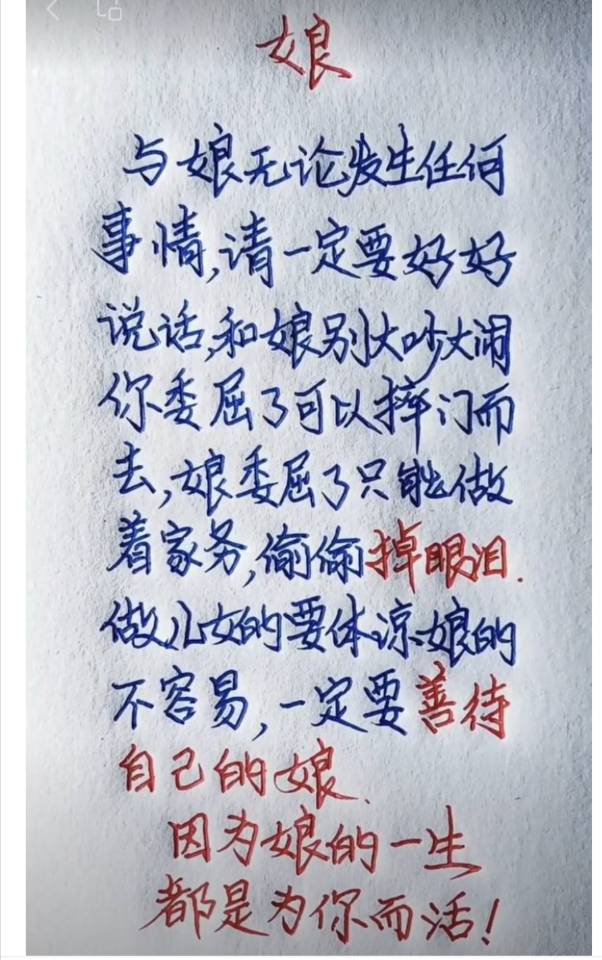 娘
与娘无论发生任何
事情,请一定要好好
说话,和娘别大吵大闹
你委屈了可以摔门而
去,娘委屈了只能做
着家务,偷偷掉眼泪.
做儿女的要体凉娘的
不容易,一定要善待
自己的娘.
因为娘的一生
都是为你而活!